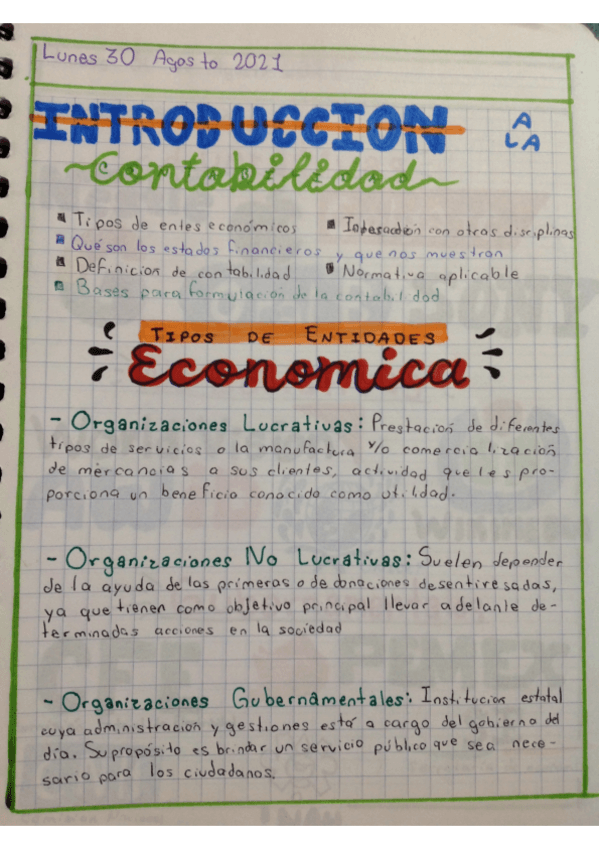 Lunes 30 Agosto 2021
INTRODUCCION A LA
Contabilidad
Tipos de entes económicos
Interacción con otras disciplinas
Qué son los estados financieros y que nos muestran
Definicion de contabilidad
Normativa aplicable
Bases para formulación de la contabilidad
TIPOS DE ENTIDADES
Economica
- Organizaciones Lucrativas: Prestación de diferentes
tipos de servicios o la manufactura y/o comercialización
de mercancias a sus clientes, actividad que les pro-
porciona un beneficio conocido como utilidad.
- Organizaciones No Lucrativas: Suelen depender
de la ayuda de las primeras o de donaciones desentiresadas,
ya que tienen como objetivo principal llevar adelante de-
terminadas acciones en la sociedad
- Organizaciones Gubernamentales: Institucion estatal
cuya administración y gestiones está a cargo del gobierno del
día. Su propósito es brindar un servicio público que sea nece-
sario para los ciudadanos.